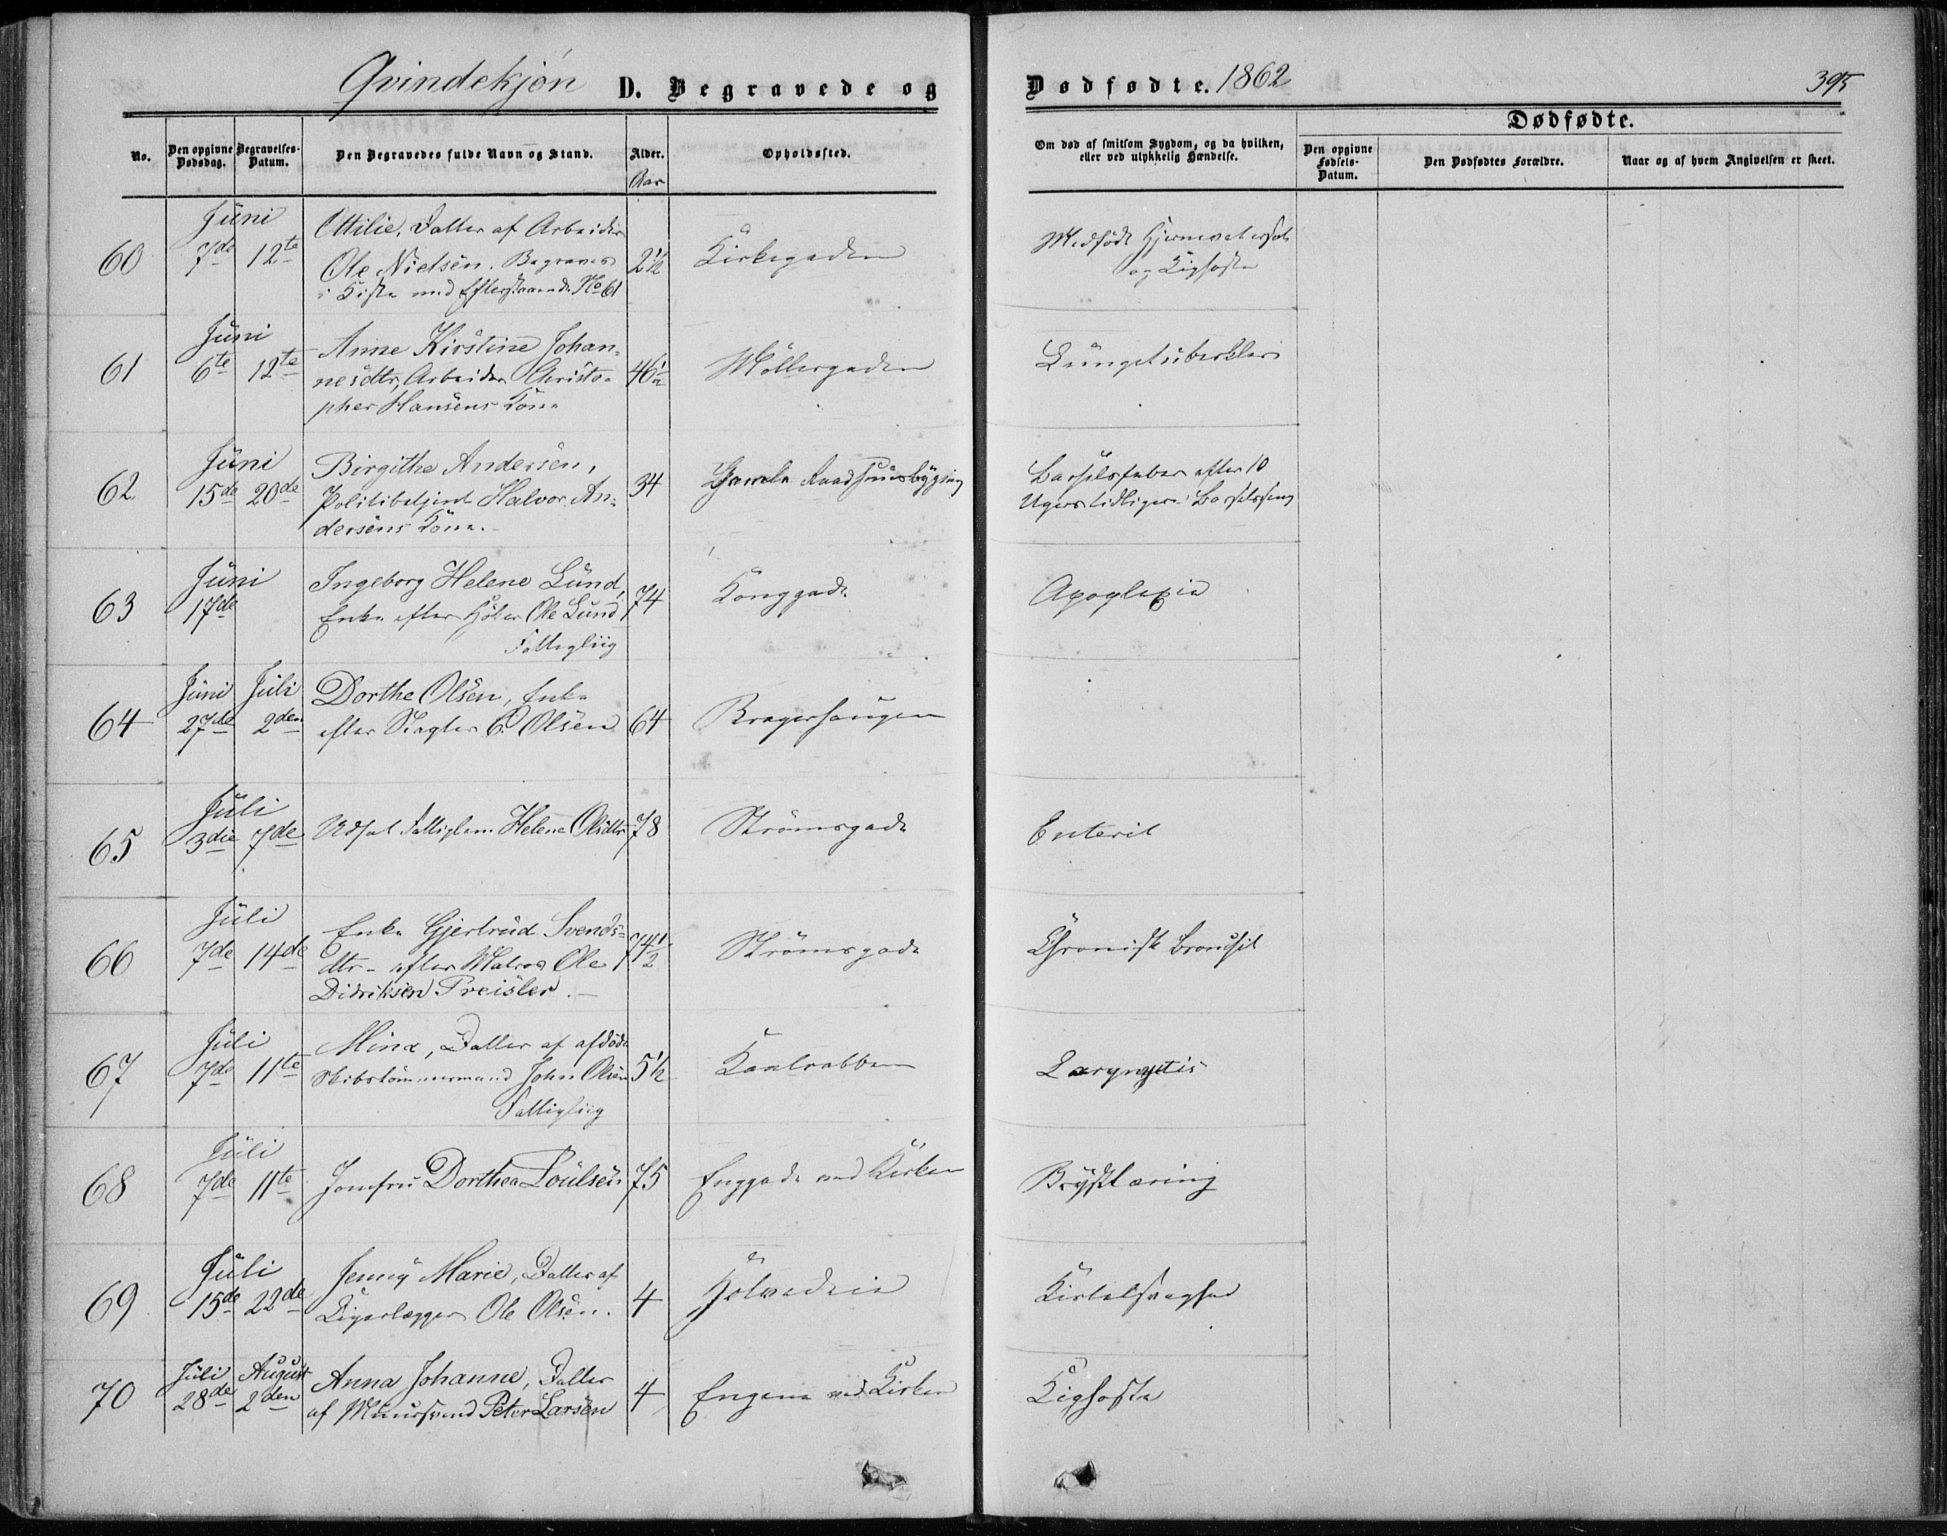 Qvindekjön D. Begravede og Dødfødte. 1862 395
No.
Den opgivne Dødsdag.
Begravelses-Datum.
Den Begravedes fulde Navn og Stand.
Alder.
Aar
Opholdssted.
Om død af smitsom Sygdom, og da hvilken,
eller ved ulykkelig Hændelse.
Dødfødte.
Den opgivne Fødsels-Datum.
Den Dødfødtes Forældre.
Naar og af hvem Angivelsen er skeet.
Juni
60 7de 12te
Ottilie, Datter af Arbeider
Ole Nielsen. Begraves
i Kiste med Efterstaaende No 61
2½ Kirkegaden
Medfødt Hjernevatersot
og Kighoste
Juni
61 6te 12te
Anne Kirstine Johan-
nesdtr, Arbeider Christo-
pher Hansens Kone
46½ Möllergaden
Lungetuberkler
Juni
62 15de 20de
Birgithe Andersen,
Politibetjent Halvor An-
dersens Kone.
34 Gamle Raadhuusbygning
Barselsfeber efter 10
Ugers tidligere Barselseng
Juni
63 17de
Ingeborg Helene Lund,
Enke efter Höker Ole Lund
Fattigliig
74 Konggade
Apoplexie
Juni Juli
64 27de 2den
Dorthe Olsen, Enke
efter Slagter C. Olsen
64 Bragerhaugen
Juli
65 3die 7de
Udsat Fattiglem Helene Olsdtr
78 Strömsgade
Enterit
Juli
66 7de 14de
Enke Gjertrud Svends-
dtr - efter Matros Ole
Didriksen Preisler.
74½ Strömsgade
Chronisk Bronchit
Juli
67 7de 11te
Mina, Datter af afdöde
Skibstömmermand John Olsen
Fattigliig
5½ Kaalrabben
Laryngitis
Juli
68 7de 11te
Jomfru Dorthea Poulsen
75 Enggade ved Kirken
Brysttæring
Juli
69 15de 22de
Jenny Marie, Datter af
Ligerlægger Ole Olsen.
4 Holvedeie
Kirtelsvaghed
Juli August
70 28de 2den
Anna Johanne, Datter
af Muursvend Peter Larsen
4 Engene ved Kirken
Kighoste